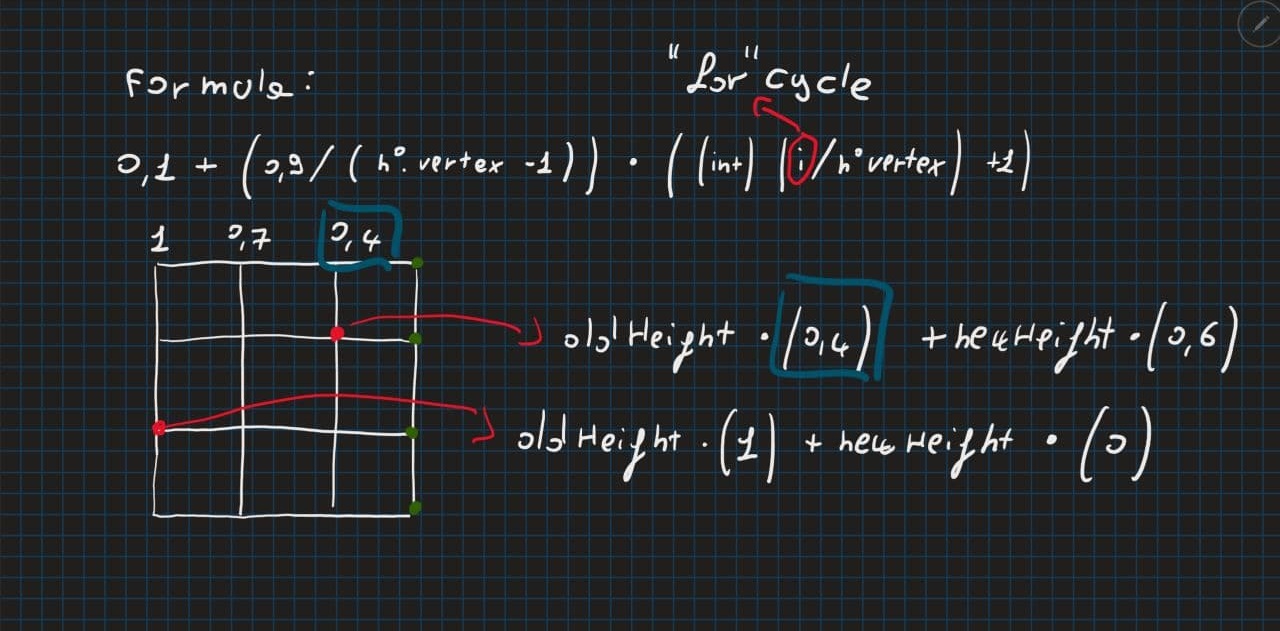 "for" cycle
Formula:
0,1 + (0,9/(n°. vertex -1)) · ((int) (i/n° vertex) +1)
1 0,7 0,4
old Height · (0,4) + new Height · (0,6)
old Height · (1) + new Height · (0)